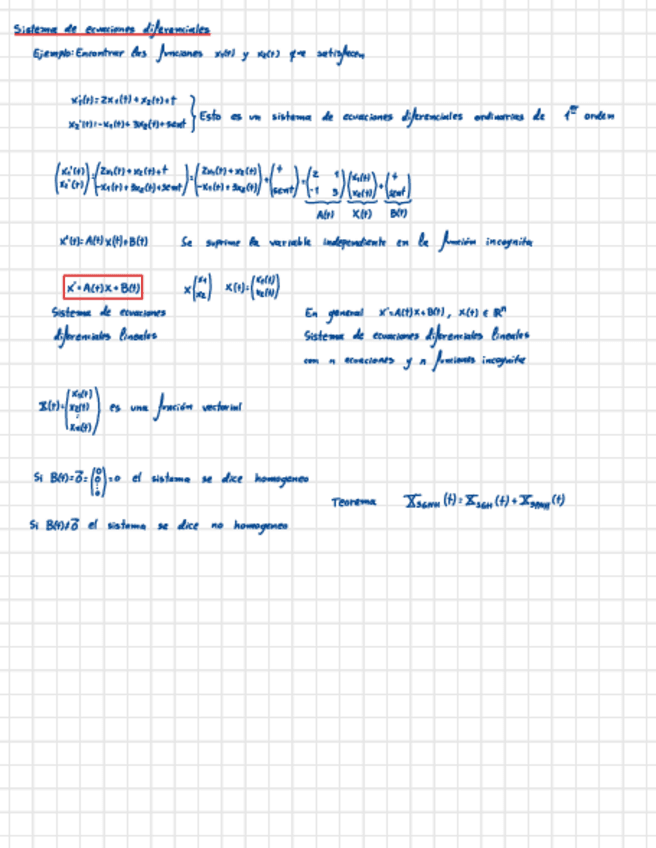 Sistema de ecuaciones diferenciales
Ejemplo: Encontrar las funciones x₁(t) y x₂(t) que satisfacen
x₁'(t)=2x₁(t)+x₂(t)+t
x₂'(t)=-x₁(t)+3x₂(t)+sent
} Esto es un sistema de ecuaciones diferenciales ordinarias de 1er orden
(x₁'(t) x₂'(t)) = (2x₁(t)+x₂(t)+t -x₁(t)+3x₂(t)+sent) = (2x₁(t)+x₂(t) -x₁(t)+3x₂(t)) + (t sent) = (2 1 -1 3)(x₁(t) x₂(t)) + (t sent)
A(t) X(t) B(t)
x'(t)=A(t)x(t)+B(t) Se suprime la variable independiente en la función incognita
x'=A(t)x+B(t) X(x₁ x₂) X(t)=(x₁(t) x₂(t))
Sistema de ecuaciones
diferenciales lineales
En general x'=A(t)x+B(t), x(t) ∈ ℝⁿ
Sistema de ecuaciones diferenciales lineales
con n ecuaciones y n funciones incognita
X(t)=(x₁(t) x₂(t) ⋮ xₙ(t)) es una función vectorial
Si B(t)=0⃗=(0 0 ⋮ 0)=0 el sistema se dice homogeneo
Teorema X_SGNH(t)=X_SGH(t)+X_SPNH(t)
Si B(t)≠0⃗ el sistema se dice no homogeneo